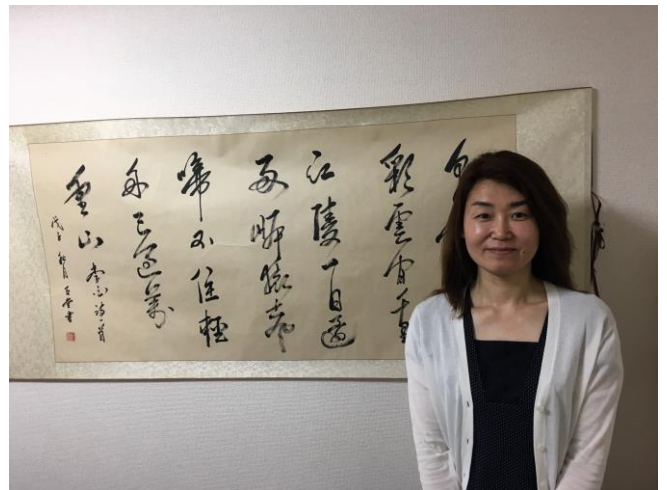 彩雲間千
江陵一日還
兩岸猿聲
啼不住輕
舟已過萬
重山 李白詩一首
戊子